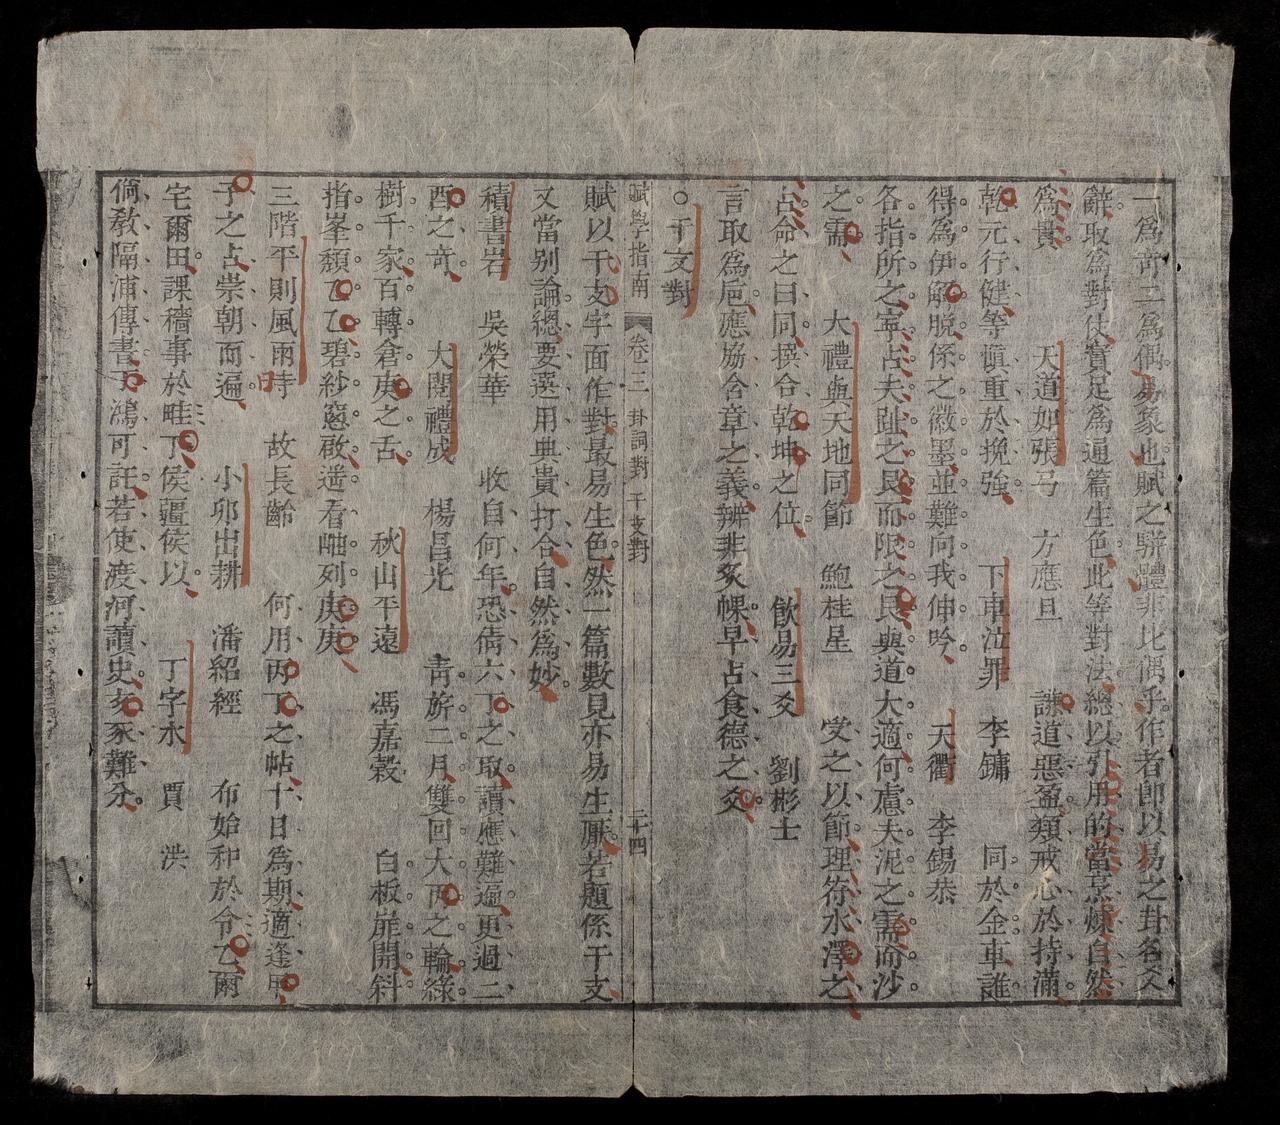 一爲奇二爲偶易象也賦之駢體非比偶乎作者卽以易之卦名爻
辭取爲對使實足爲通篇生色此等對法總以引用的當烹煉自然
爲貴　天道如張弓　方應旦　謙道惡盈類戒心於持滿
乾元行健等愼重於挽強　下車泣罪　李鏞　同於金車誰
得爲伊解脫係之徽墨並難向我伸吟　天衢　李錫恭
各指所之寧占夫趾之艮而限之艮與道大適何慮夫泥之需而沙
之需　大禮與天地同節　鮑桂星　受之以節理符水澤之
占命之曰同撰合乾坤之位　飮易三爻　劉彬士
言取爲卮應協合章之義辨非炙輠早占食德之爻
○干支對
賦學指南　卷三　卦詞對　干支對　二十四
賦以干支字面作對最易生色然一篇數見亦易生厭若題係干支
又當別論總要選用典貴打合自然爲妙
積書岩　吳榮華　收自何年恐倩六丁之取讀應難遍更過二
酉之奇　大閱禮成　楊昌光　靑旂二月雙回大丙之輪綠
樹千家百轉倉庚之舌　秋山平遠　馮嘉穀　白板扉開斜
指峯頹乙乙碧紗窻啟遥看岫列庚庚
三階平則風雨時　故長齡　何用丙丁之帖十日爲期適逢甲
子之占崇朝而遍　小卯出耕　潘紹經　布始和於令乙爾
宅爾田課穡事於畦丁侯疆侯以　丁字水　賈　洪
倘敎隔浦傳書于鴻可託若使渡河讀史亥豕難分